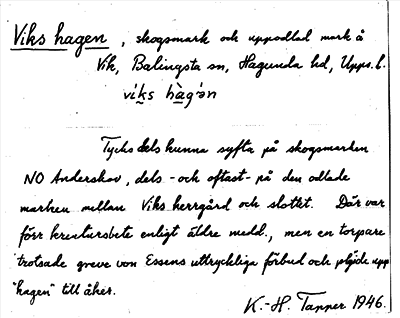 Viks hagen, skogsmark och uppodlad mark å
Vik, Balingsta sn, Hagunda hd, Upps. l.
vi̱ks hàgən
Tycks dels kunna syfta på skogsmarken
NO Anderskov, dels - och oftast - på den odlade
marken mellan Viks herrgård och slottet. Där var
förr kreatursbete enligt äldre medd., men en torpare
trotsade greve von Essens uttryckliga förbud och plöjde upp
"hagen" till åker.
K.-H. Tapper 1946.